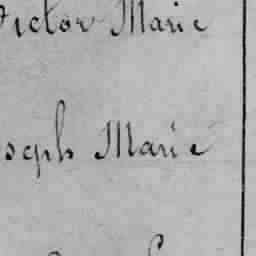 Victor Marie
oseph Marie